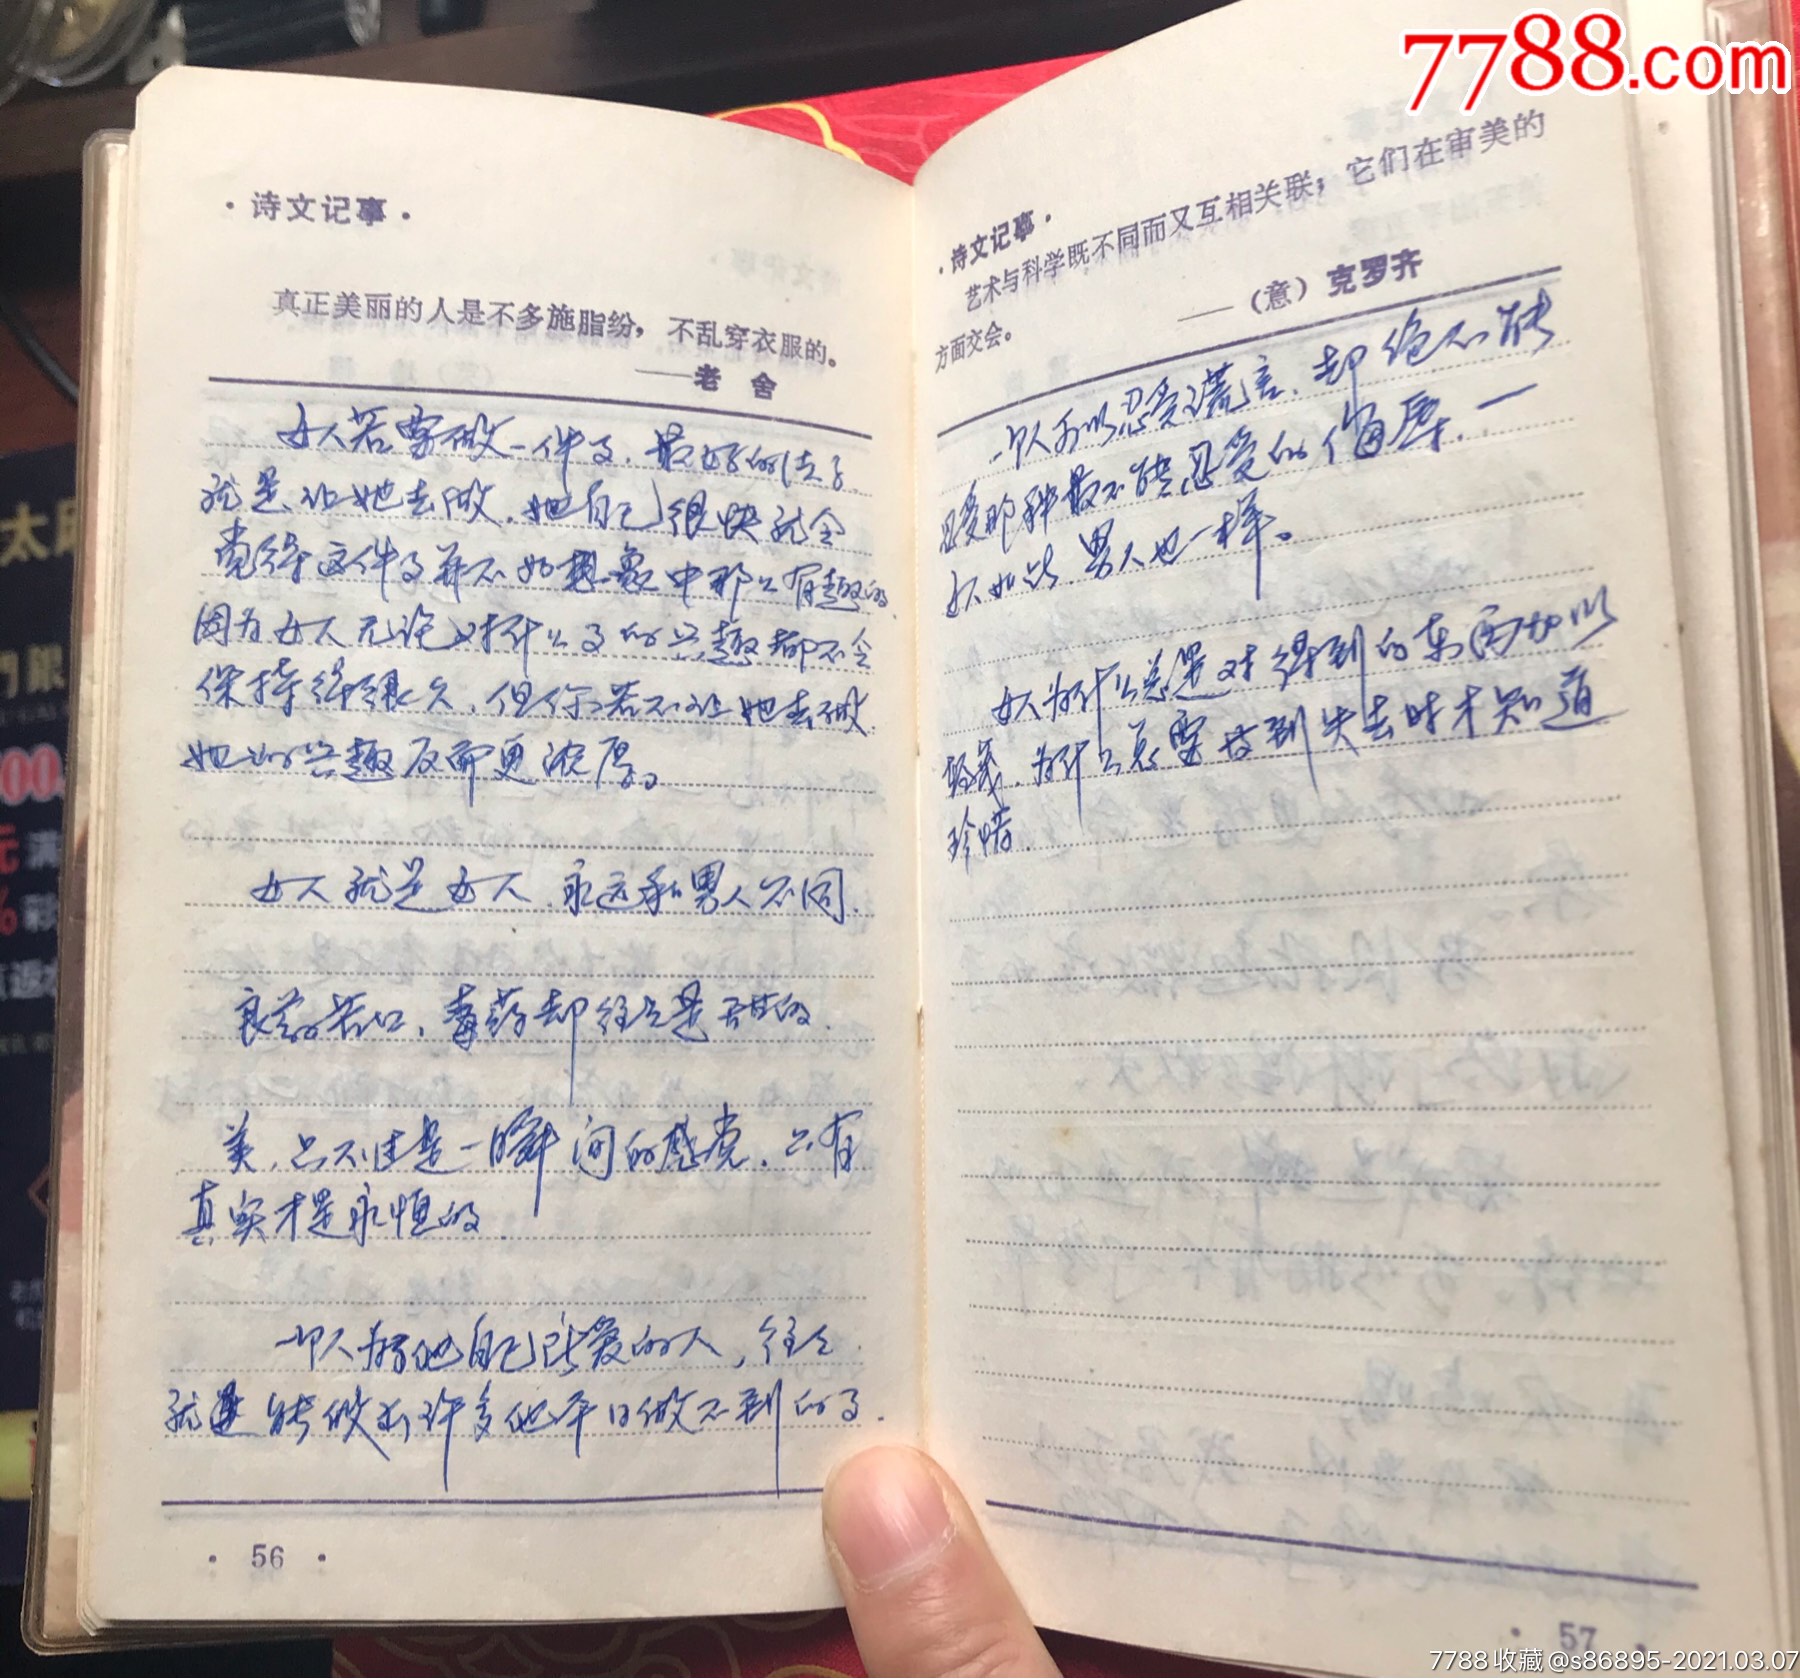 7788.com
·诗文记事·
真正美丽的人是不多施脂纷，不乱穿衣服的。
——老 舍
女人若要做一件事，最好的法子
就是让她去做，她自己很快就会
觉得这件事并不如想象中那么有趣的
因为女人无论对什么事的兴趣都不会
保持得很久，但你若不让她去做
她的兴趣反而更浓厚。
女人就是女人，永远和男人不同，
良药苦口，毒药却往往是甜的，
美，只不过是一瞬间的感觉，只有
真实才是永恒的，
一个人为他自己所爱的人，往往
就能做出许多他平日做不到的事，
· 56 ·
·诗文记事·
艺术与科学既不同而又互相关联；它们在审美的
方面交会。
——（意）克罗齐
一个人可以忍受谎言，却绝不能
忍受那种最不能忍受的侮辱，一
女人如此，男人也一样。
女人为什么总是对得到的东西加以
轻蔑，为什么总要等到失去时才知道
珍惜，
· 57 ·
太麻
門眼
00
元 满
% 彩
返
7788收藏@s86895-2021.03.07